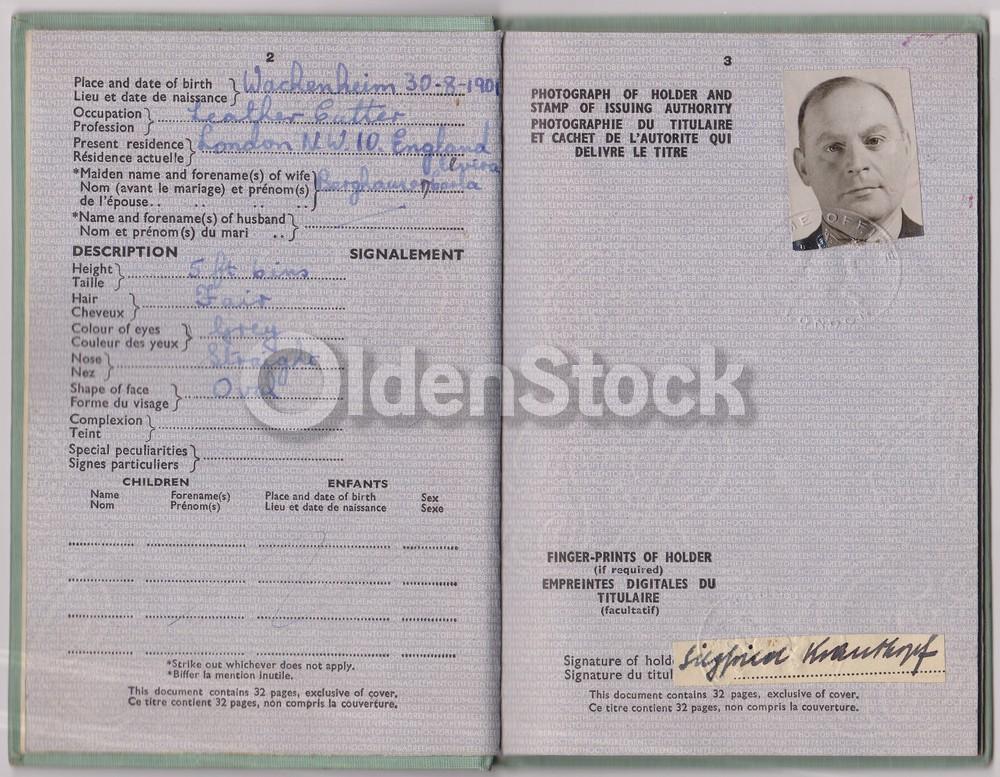 2
Place and date of birth } Wachenheim 30-8-1901
Lieu et date de naissance
Occupation } Leather Cutter
Profession
Present residence } London N.W.10. England
Résidence actuelle
*Maiden name and forename(s) of wife }
Nom (avant le mariage) et prénom(s)
de l'épouse..
*Name and forename(s) of husband }
Nom et prénom(s) du mari ..
DESCRIPTION SIGNALEMENT
Height } 5 ft 6ins
Taille
Hair } Fair
Cheveux
Colour of eyes } Grey
Couleur des yeux
Nose } Straight
Nez
Shape of face } Oval
Forme du visage
Complexion }
Teint
Special peculiarities }
Signes particuliers
CHILDREN ENFANTS
Name Forename(s) Place and date of birth Sex
Nom Prénom(s) Lieu et date de naissance Sexe
*Strike out whichever does not apply.
*Biffer la mention inutile.
This document contains 32 pages, exclusive of cover.
Ce titre contient 32 pages, non compris la couverture.
3
PHOTOGRAPH OF HOLDER AND
STAMP OF ISSUING AUTHORITY
PHOTOGRAPHIE DU TITULAIRE
ET CACHET DE L'AUTORITE QUI
DELIVRE LE TITRE
OFFICE
LONDON
FINGER-PRINTS OF HOLDER
(if required)
EMPREINTES DIGITALES DU
TITULAIRE
(facultatif)
Signature of hold
Signature du titul
Siegfried Krautkopf
This document contains 32 pages, exclusive of cover.
Ce titre contient 32 pages, non compris la couverture.
OldenStock